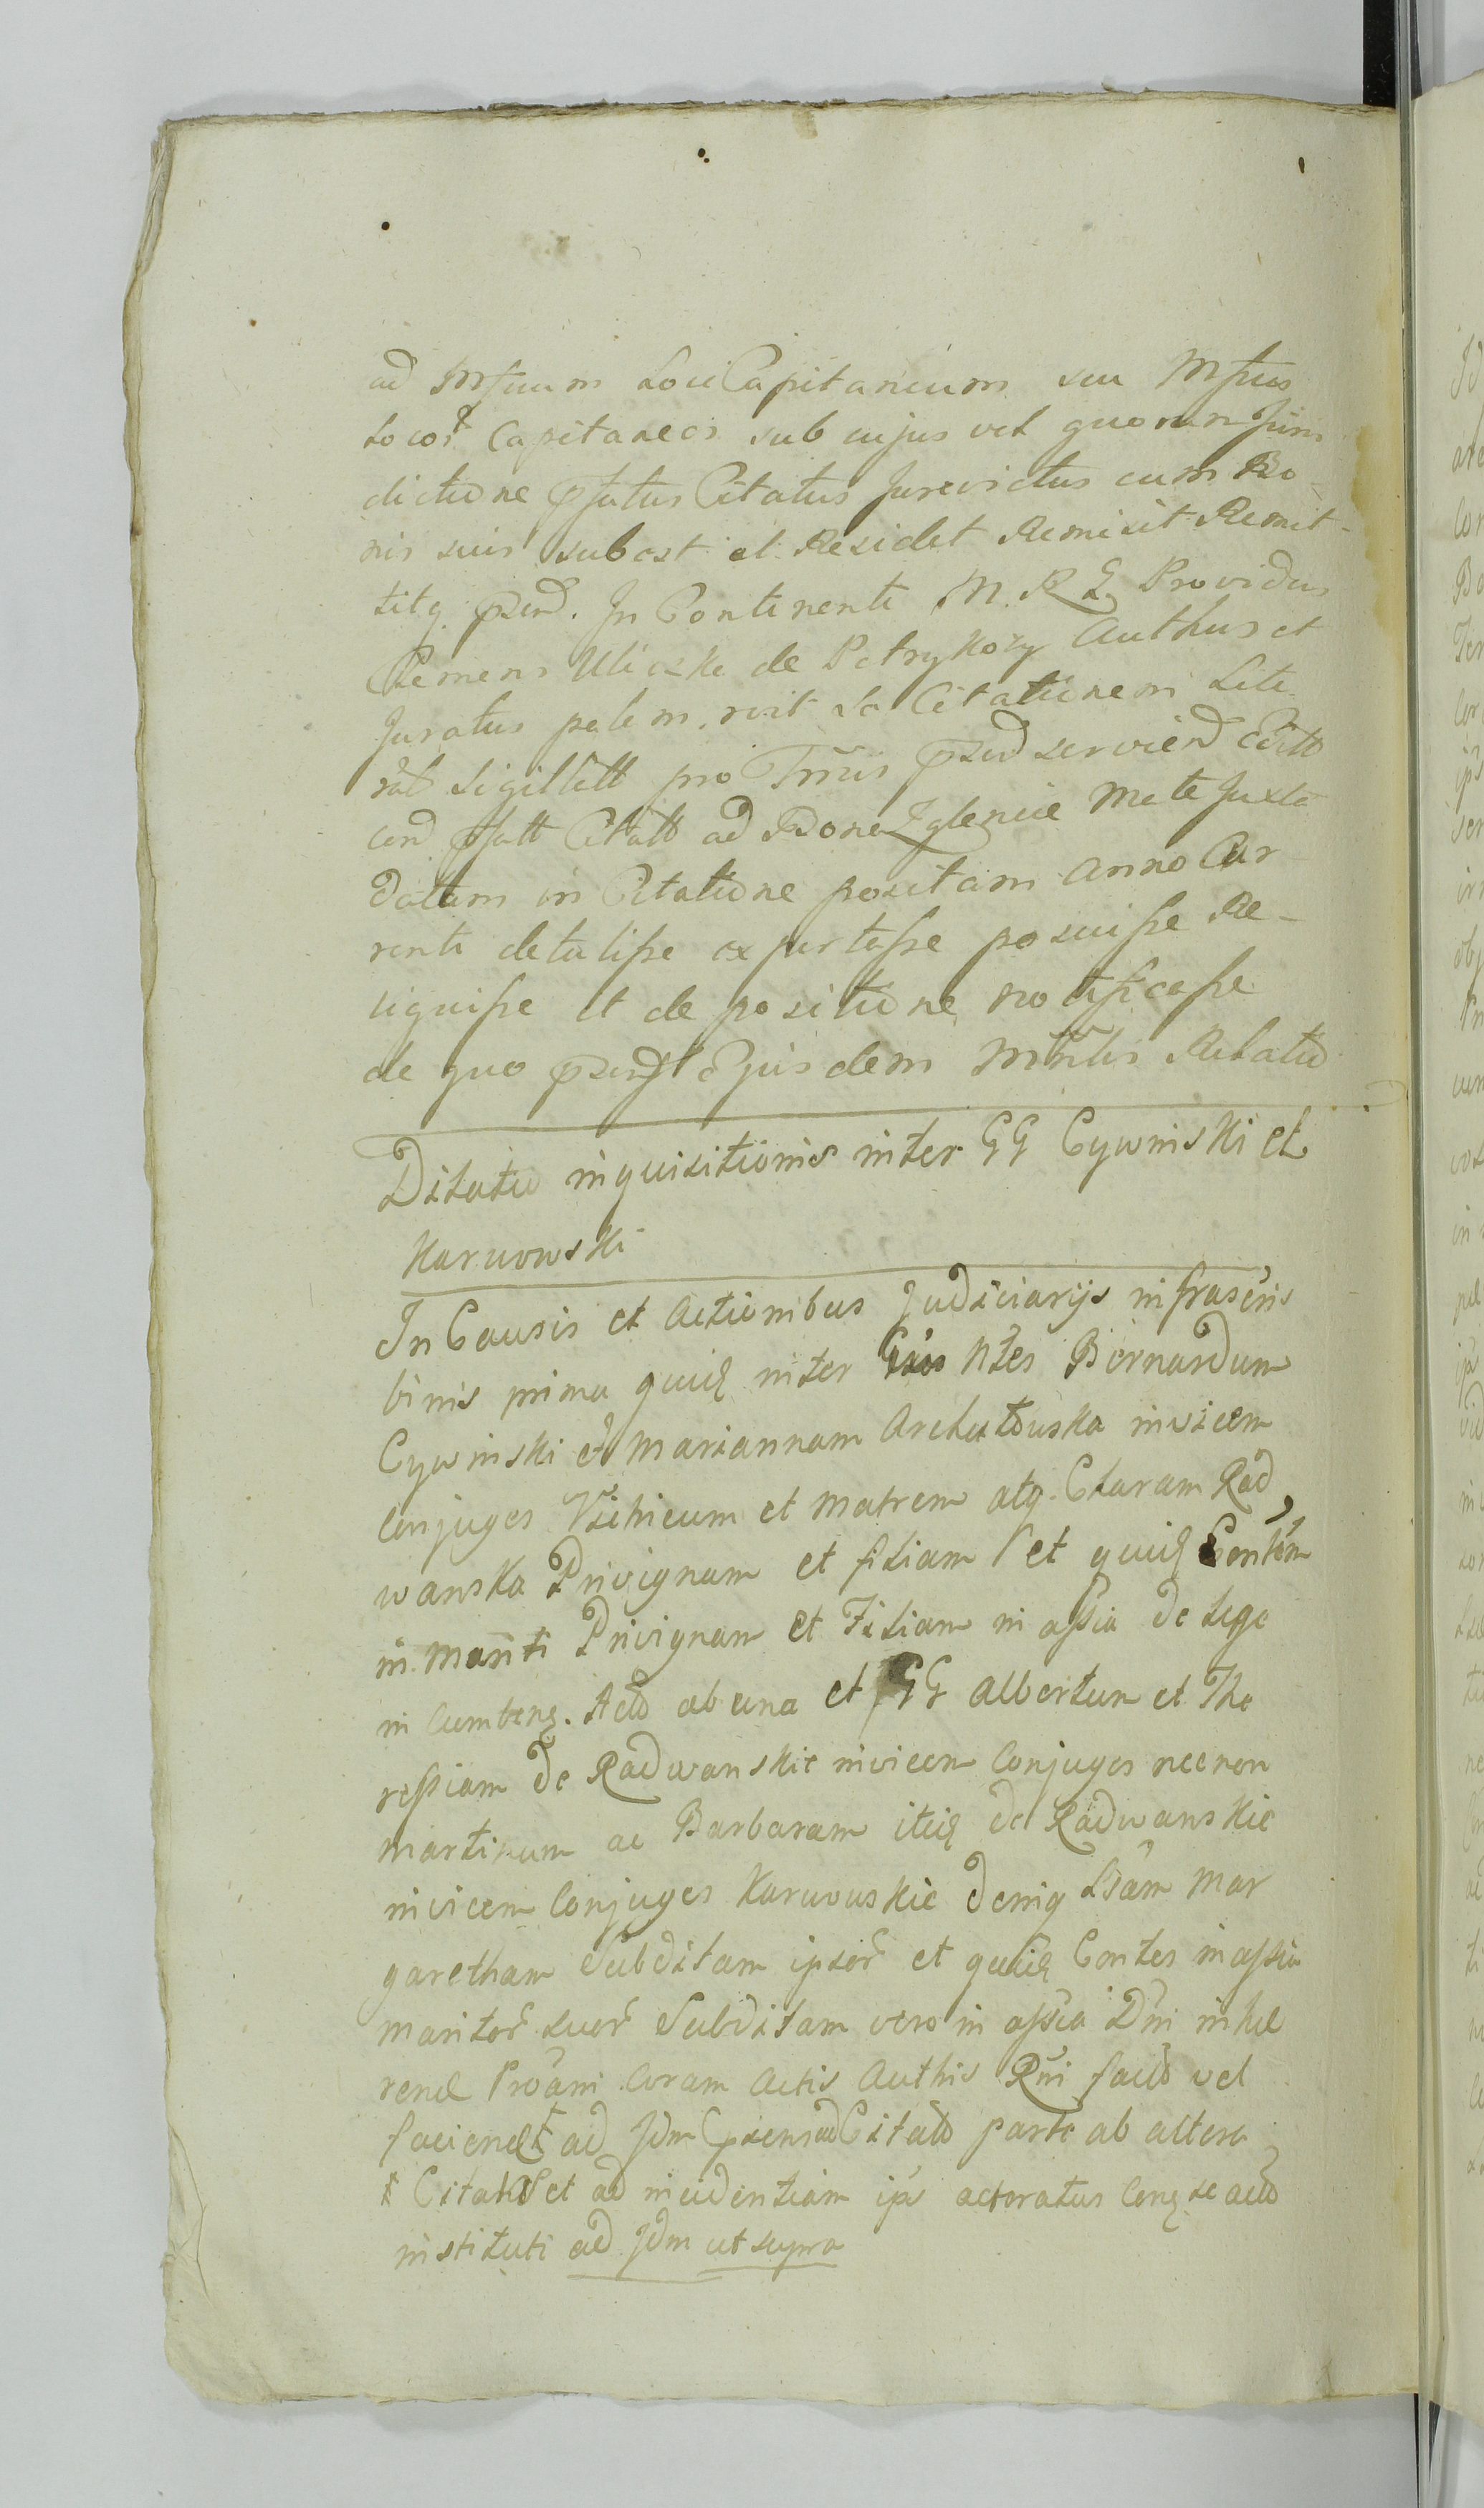 ad Mfium Loci Capitaneum seu Mfios
Locor̃ Capitaneos sub cujus vel quorum Juris
dictione pfatus Citatus Jurevictus cum Bo-
nis suis subest et Residet Remisit Remit-
titq pñd. In Continenti M. R. G. Providus
Clemens Uliczka de Petrykozy Authus et
Juratus palam. rvit se Citationem Lite
rał Sigillatt pro Tmis pñd serviend Editt
cond pfatt Citatt ad Bona Zglenice Małe Juxta
datam in Citatione positam anno Cur
renti detulisse exportasse posuisse Re-
liquisse et de positione notificasse
de quo pñdgt Ejusdem Mñlis Relatio
Dilatio inquisitionis inter GG Cywinski et
Karwowski
In Causis et Actionibus Judiciarijs infrascris
binis prima quid inter Gsos Ntes Bernardum
Cywinski et Mariannam Archutouska invicem
Conjuges Vitricum et Matrem atq. Claram Rad
wanska Privignam et filiam et quid Contem
in. Manti Privignam et Filiam in assia de Lege
in Cumbend. Acto ab una et GG Albertum et The
ressiam de Radwanskie invicem Conjuges necnon
Martinum ac Barbaram itid de Radwanskie
invicem Conjuges Karwouskie deniq Lsam Mar
garetham Subditam ipsor̃ et quid Contes in assia
Maritor̃ suor̃ Subditam vero in assia Dni inhæ
rend Proani Coram Actis Authis Rni facto vel
faciend ad Jdm Cpsensad Citatto parte ab altera
Citatos et ad incidentiam ips actoratus Cond se acto
instituti ad Jdm ut supra